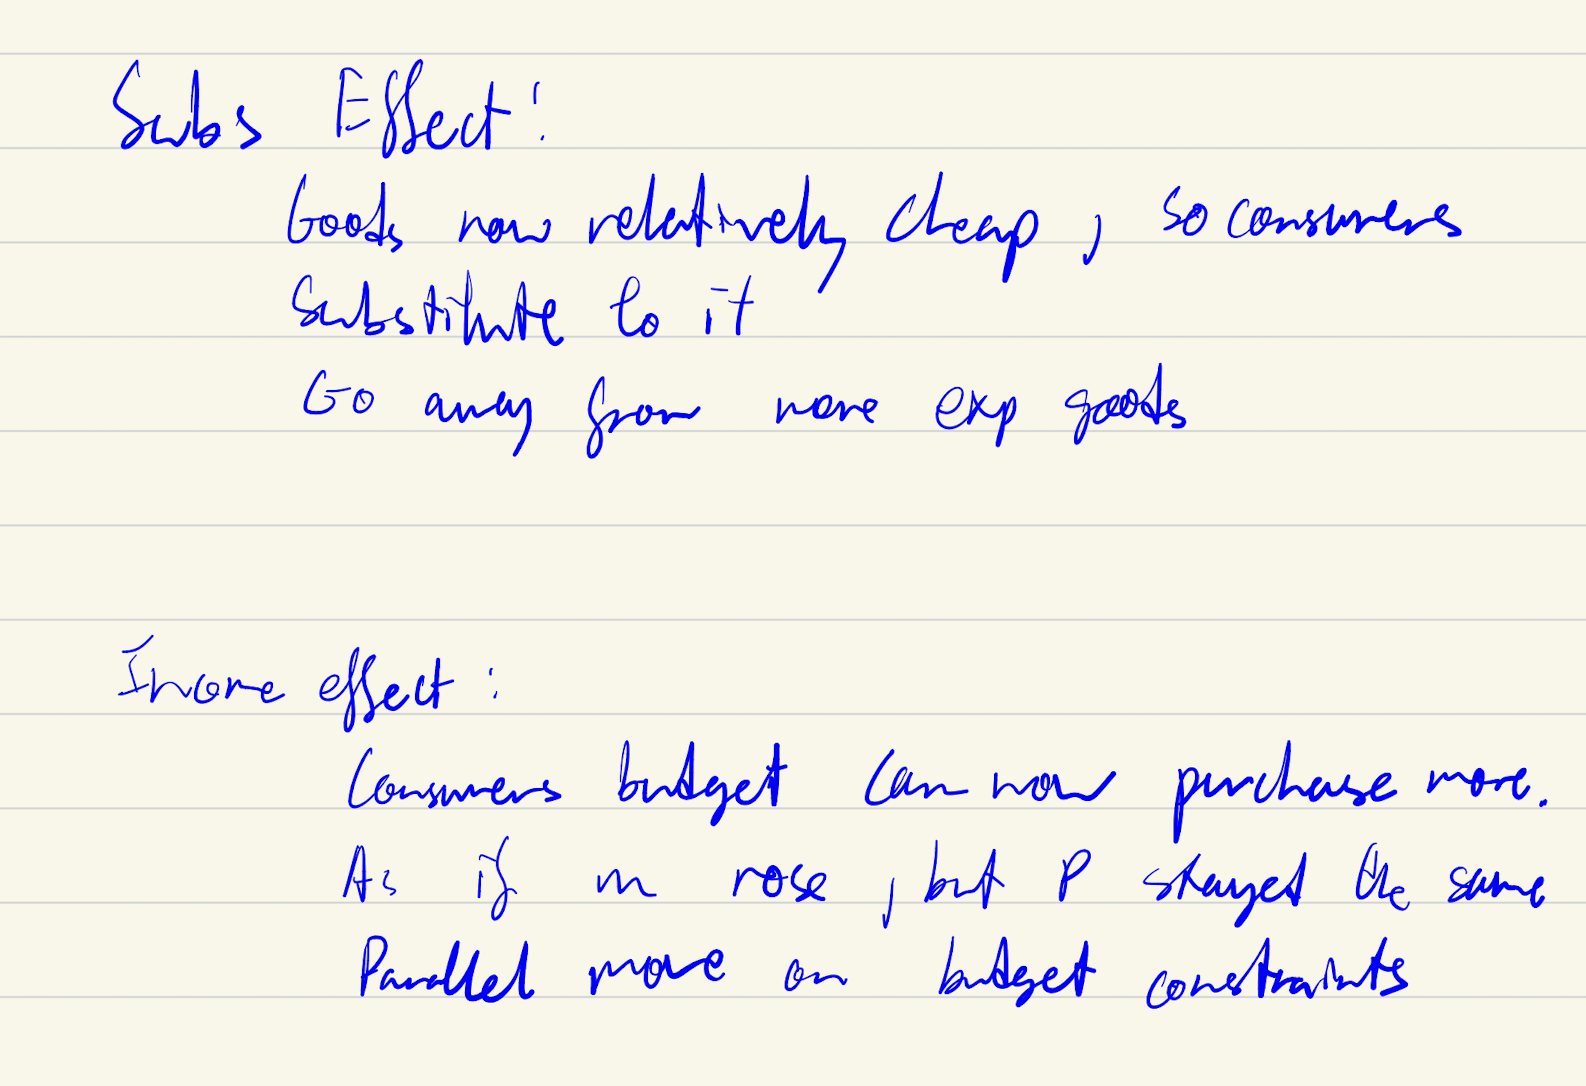 Subs Effect:
Goods now relatively cheap, so consumers
Substitute to it
Go away from more exp goods
Income effect:
Consumers budget can now purchase more.
As if m rose, but P stayed the same
Parallel move on budget constraints